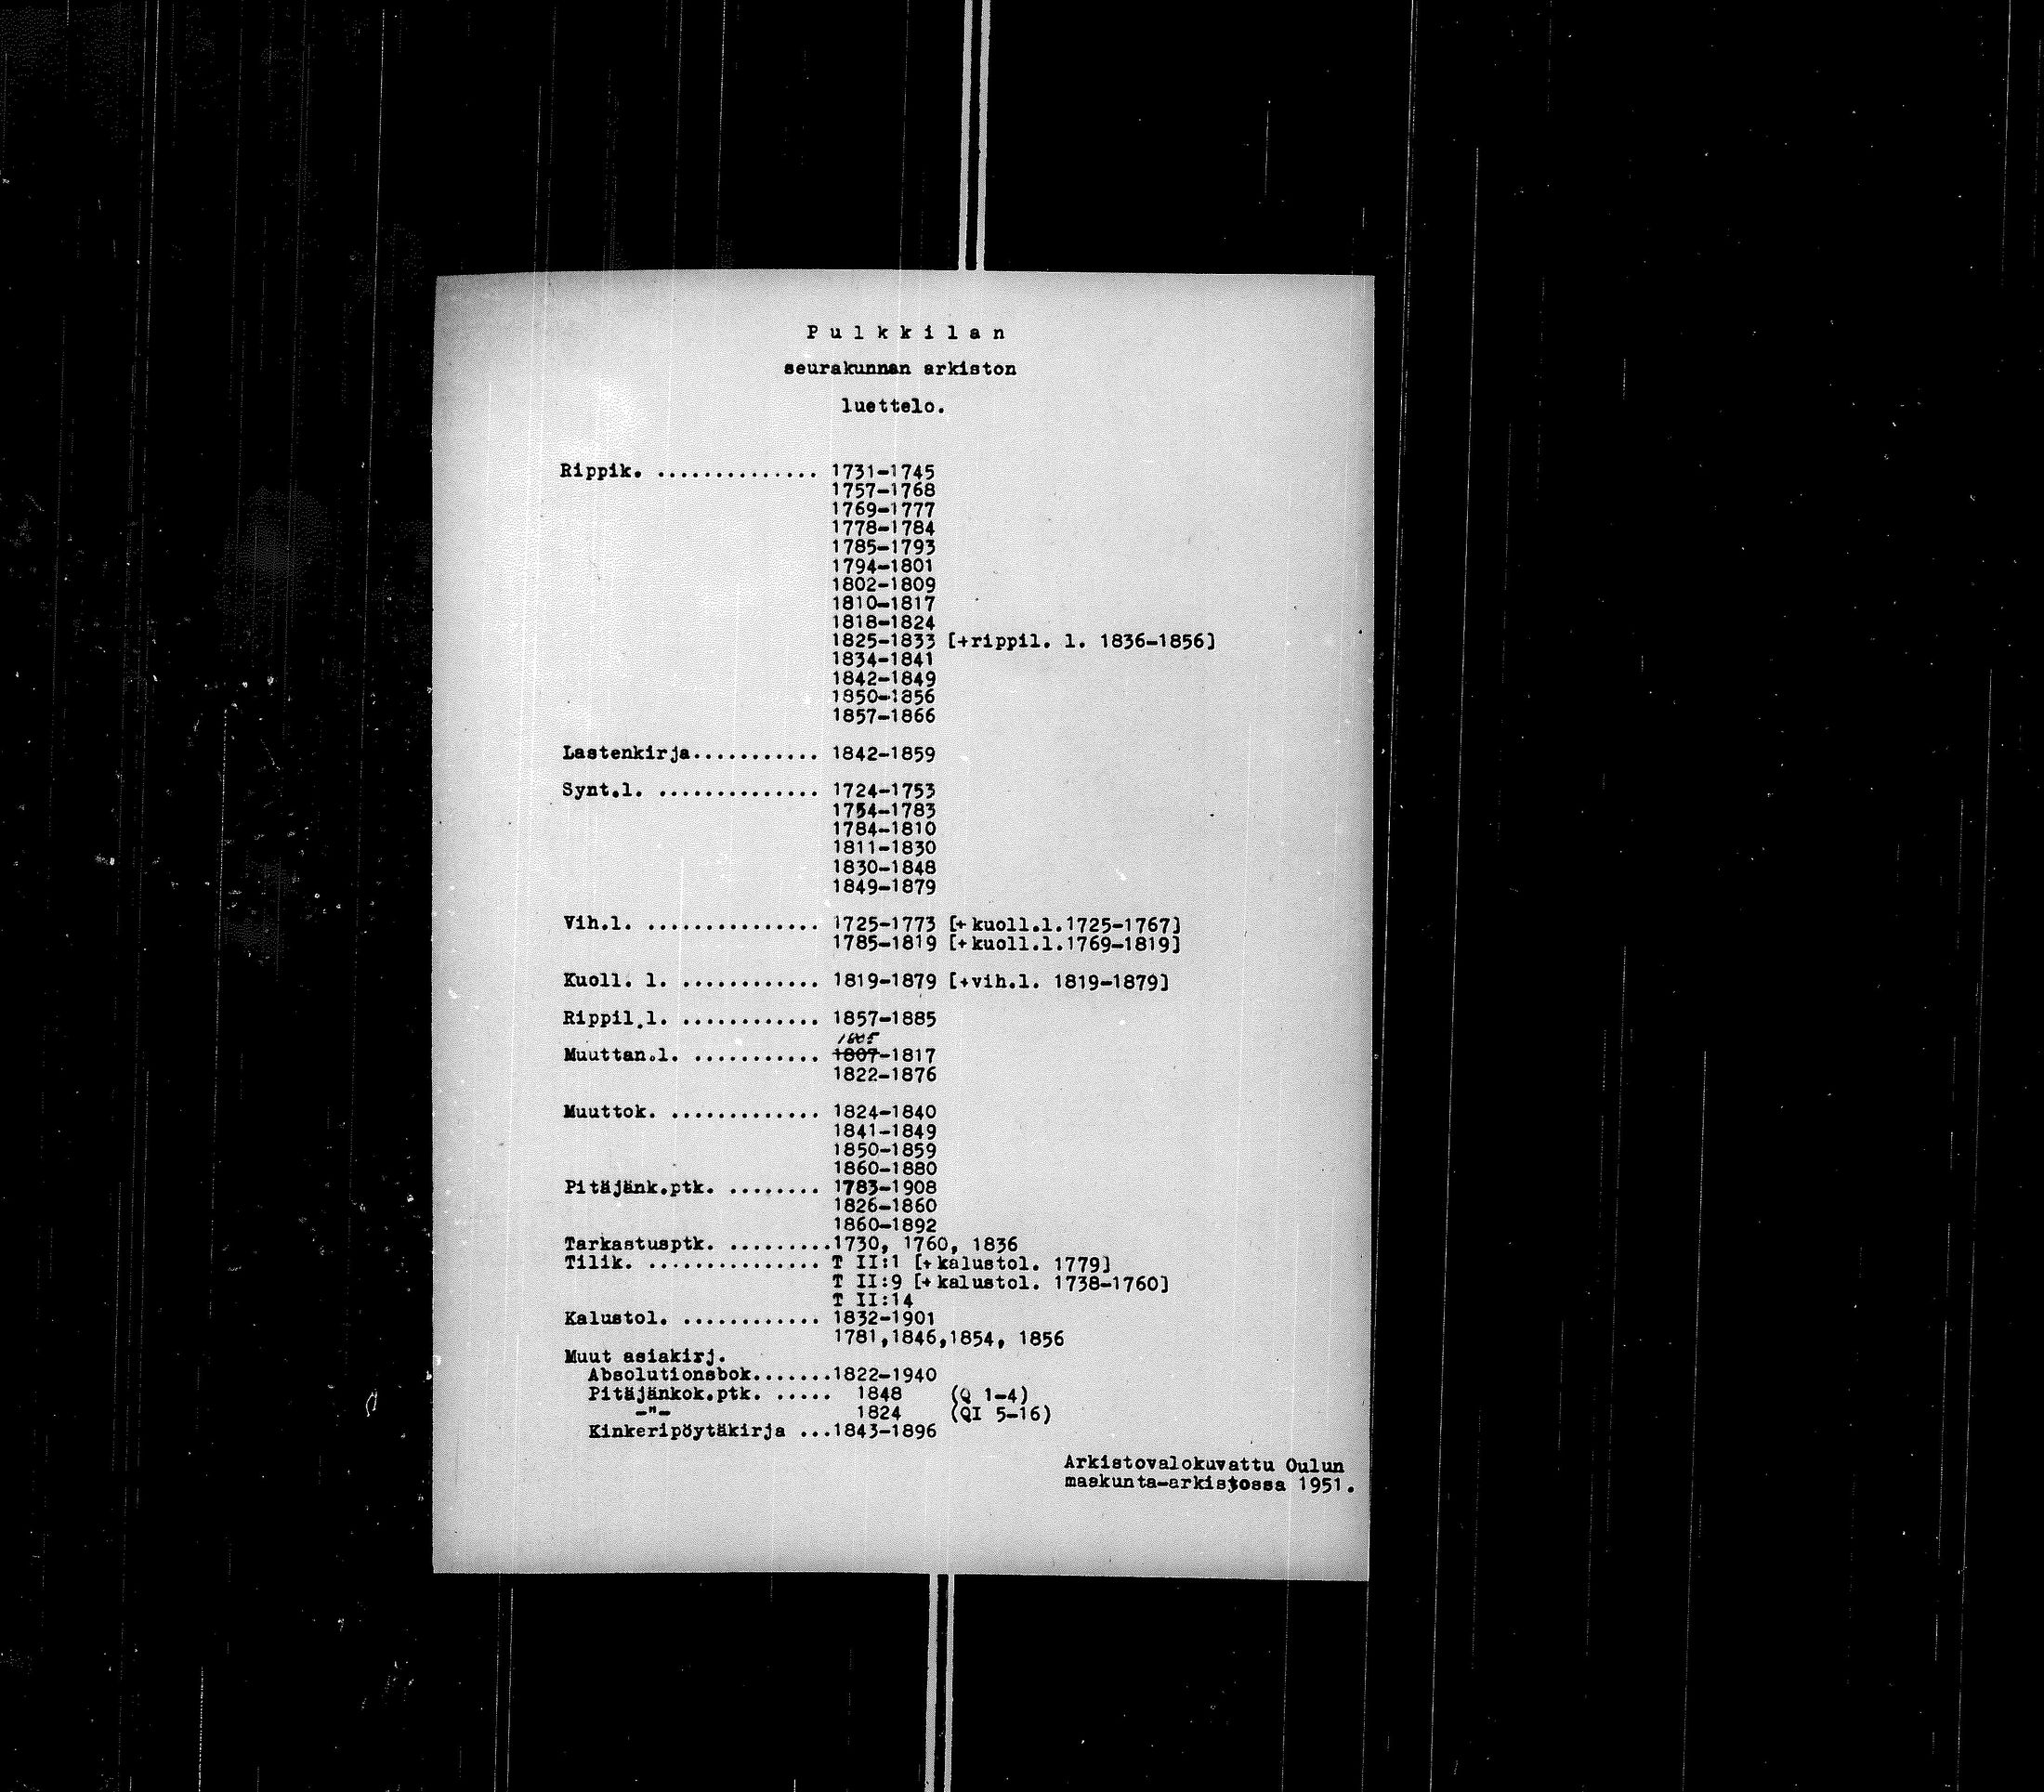 Pulkkilan
seurakunnan arkiston
luettelo.
Rippik. .............. 1731-1745
1757-1768
1769-1777
1778-1784
1785-1793
1794-1801
1802-1809
1810-1817
1818-1824
1825-1833 [+rippil. l. 1836-1856]
1834-1841
1842-1849
1850-1856
1857-1866
Lastenkirja........... 1842-1859
Synt.l. .............. 1724-1753
1754-1783
1784-1810
1811-1830
1830-1848
1849-1879
Vih.l. ............... 1725-1773 [+kuoll.l.1725-1767]
1785-1819 [+kuoll.l.1769-1819]
Kuoll. l. ............ 1819-1879 [+vih.l. 1819-1879]
Rippil.l. ............ 1857-1885
1805
Muuttan.l. ........... 1807-1817
1822-1876
Muuttok. ............. 1824-1840
1841-1849
1850-1859
1860-1880
Pitäjänk.ptk. ........ 1783-1908
1826-1860
1860-1892
Tarkastusptk. .........1730, 1760, 1836
Tilik. ............... T II:1 [+kalustol. 1779]
T II:9 [+kalustol. 1738-1760]
T II:14
Kalustol. ............ 1832-1901
1781,1846,1854, 1856
Muut asiakirj.
Absolutionsbok.......1822-1940
Pitäjänkok.ptk. ..... 1848 (Q 1-4)
-"- 1824 (QI 5-16)
Kinkeripöytäkirja ...1843-1896
Arkistovalokuvattu Oulun
maakunta-arkistossa 1951.